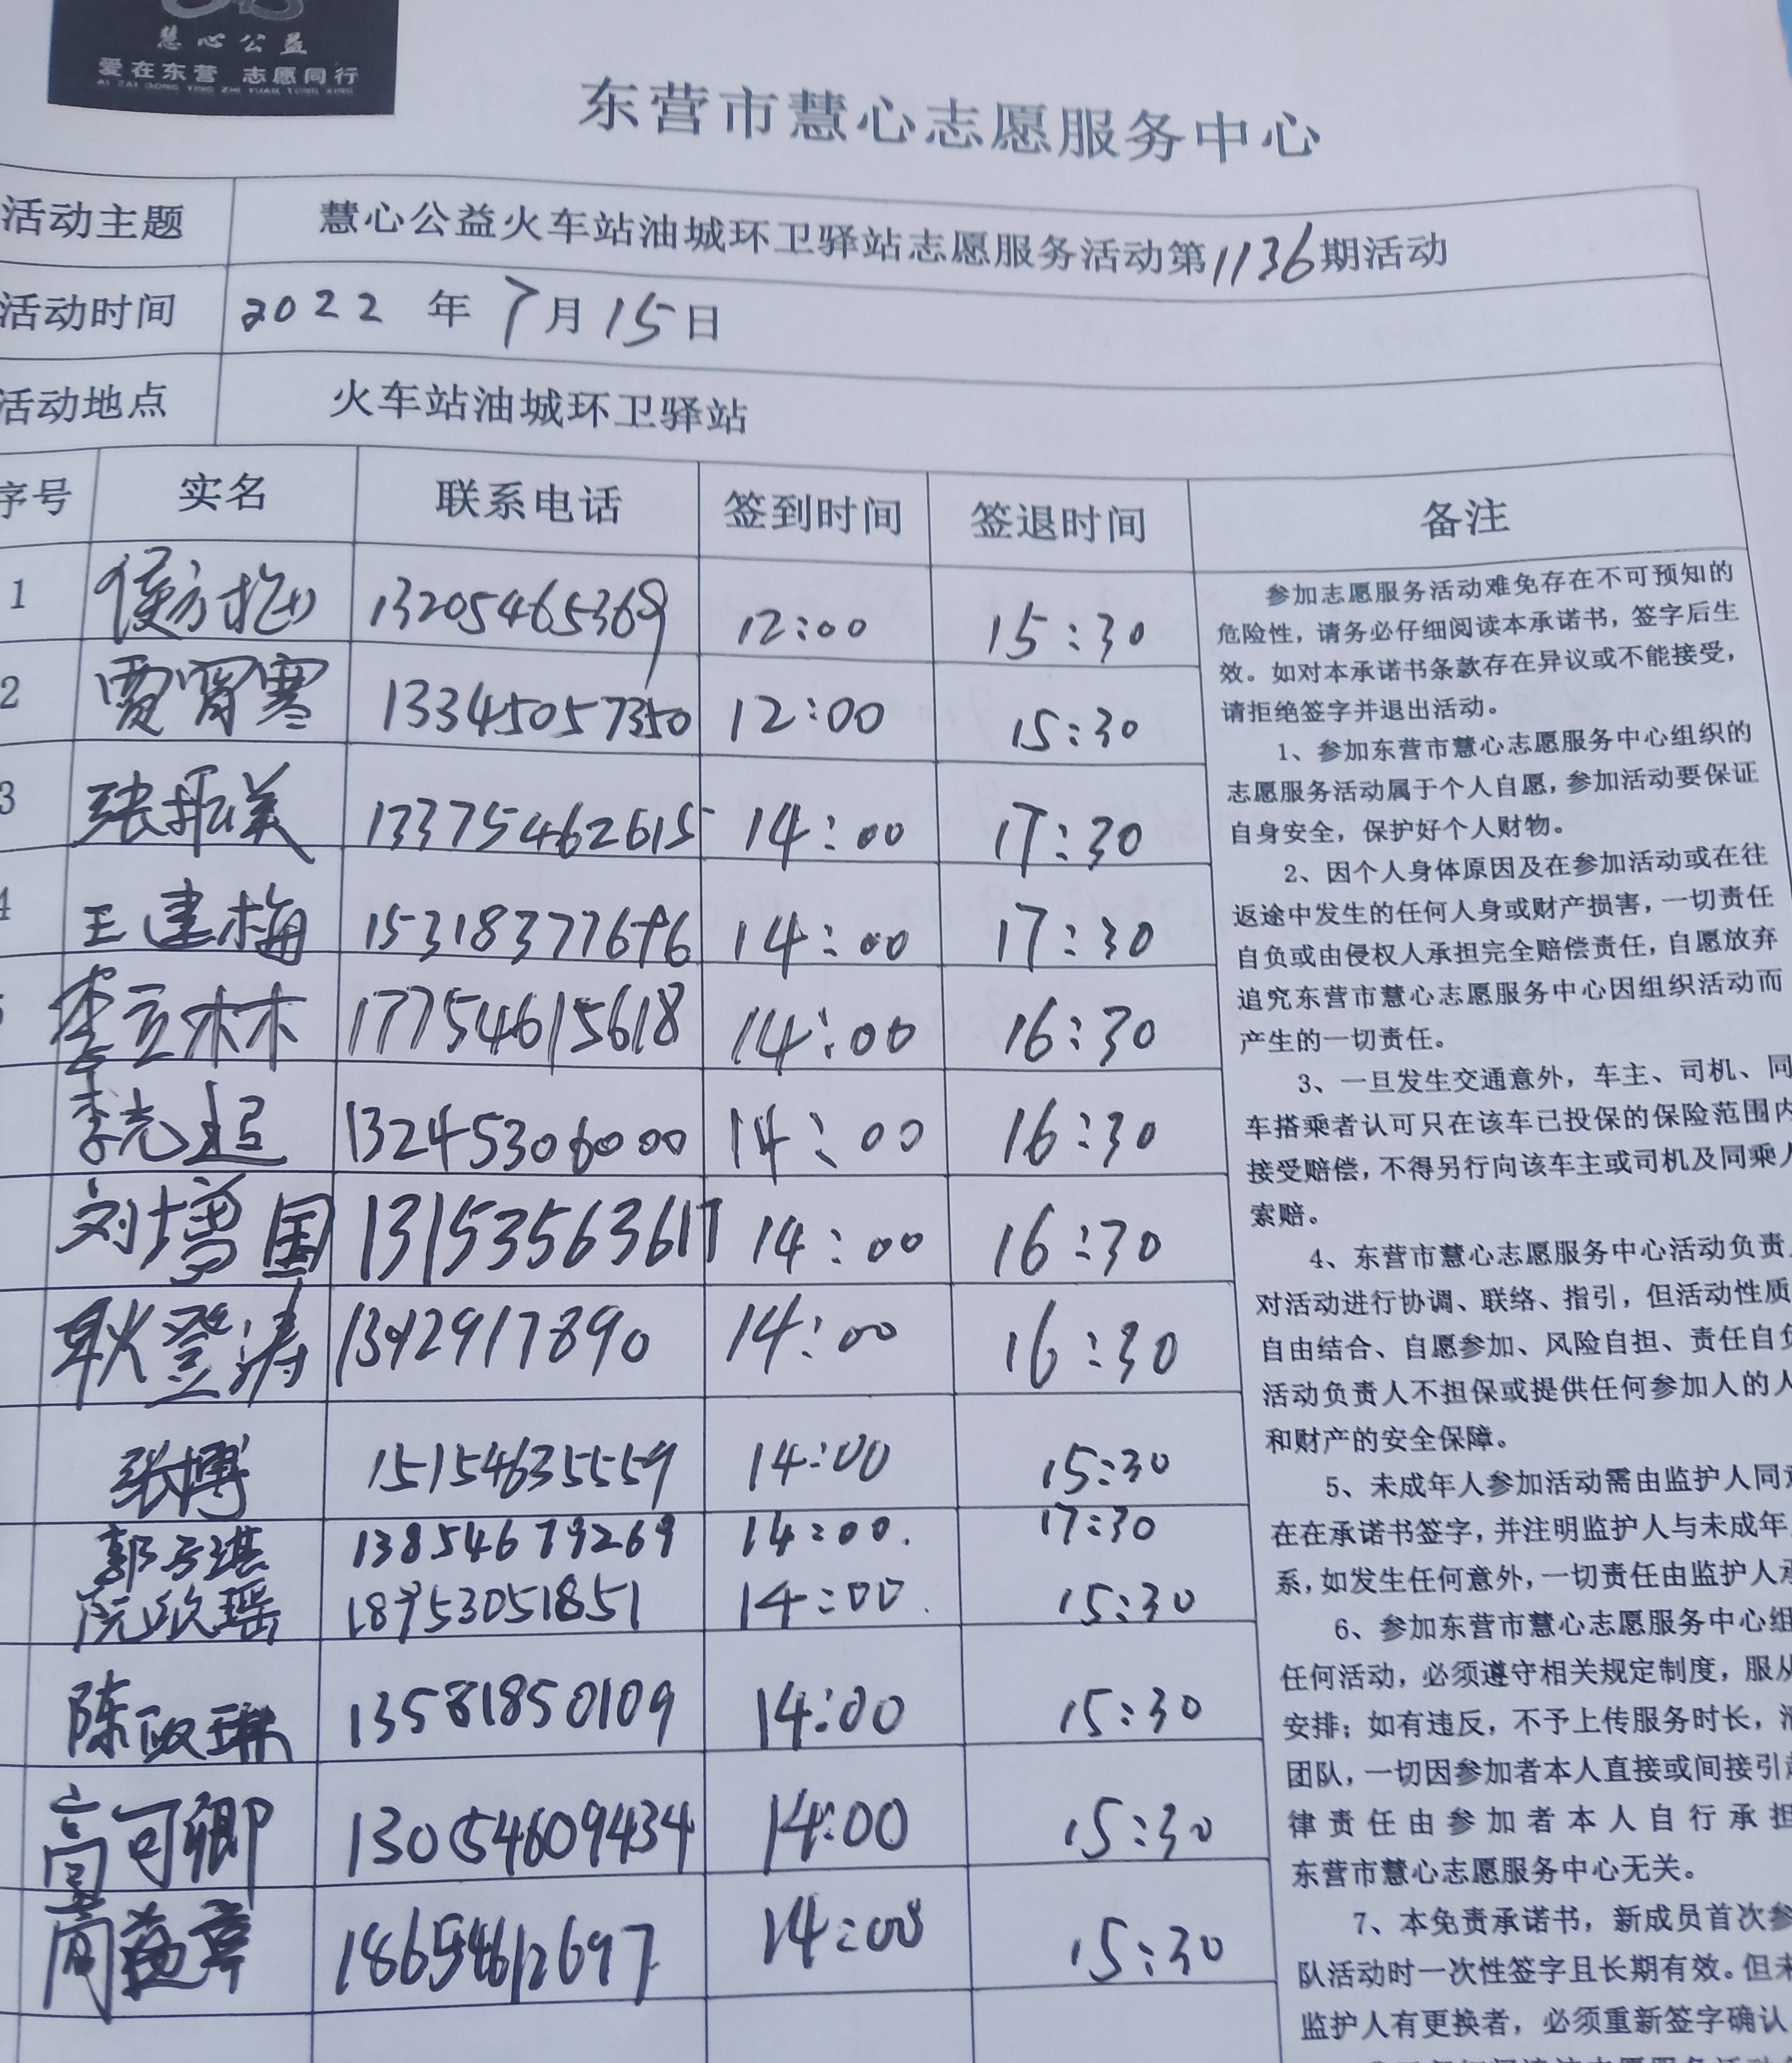 慧心公益
爱在东营 志愿同行
AI ZAI DONG YING ZHI YUAN TONG XING
东营市慧心志愿服务中心
活动主题 慧心公益火车站油城环卫驿站志愿服务活动第1136期活动
活动时间 2022 年 7月 15日
活动地点 火车站油城环卫驿站
序号 实名 联系电话 签到时间 签退时间 备注
1 13205465369 12:00 15:30
2 贾宵寒 13345057350 12:00 15:30
3 张振美 13375462615 14:00 17:30
4 王建梅 15318377696 14:00 17:30
李立林 17754615618 14:00 16:30
李光超 13245306000 14:00 16:30
刘增国 13153563617 14:00 16:30
耿登涛 14:00 16:30
张博 15154635559 14:00 15:30
13854679269 14:00. 17:30
阮欣瑶 18953051851 14:00. 15:30
陈政琳 13581850109 14:00 15:30
高可卿 13054609434 14:00 15:30
18654612697 14:00 15:30
参加志愿服务活动难免存在不可预知的
危险性，请务必仔细阅读本承诺书，签字后生
效。如对本承诺书条款存在异议或不能接受，
请拒绝签字并退出活动。
1、参加东营市慧心志愿服务中心组织的
志愿服务活动属于个人自愿，参加活动要保证
自身安全，保护好个人财物。
2、因个人身体原因及在参加活动或在往
返途中发生的任何人身或财产损害，一切责任
自负或由侵权人承担完全赔偿责任，自愿放弃
追究东营市慧心志愿服务中心因组织活动而
产生的一切责任。
3、一旦发生交通意外，车主、司机、同
车搭乘者认可只在该车已投保的保险范围内
接受赔偿，不得另行向该车主或司机及同乘人
索赔。
4、东营市慧心志愿服务中心活动负责
对活动进行协调、联络、指引，但活动性质
自由结合、自愿参加、风险自担、责任自负
活动负责人不担保或提供任何参加人的人
和财产的安全保障。
5、未成年人参加活动需由监护人同意
在在承诺书签字，并注明监护人与未成年
系，如发生任何意外，一切责任由监护人承
6、参加东营市慧心志愿服务中心组
任何活动，必须遵守相关规定制度，服从
安排；如有违反，不予上传服务时长，
团队，一切因参加者本人直接或间接引起
律责任由参加者本人自行承担
东营市慧心志愿服务中心无关。
7、本免责承诺书，新成员首次参
队活动时一次性签字且长期有效。但未
监护人有更换者，必须重新签字确认